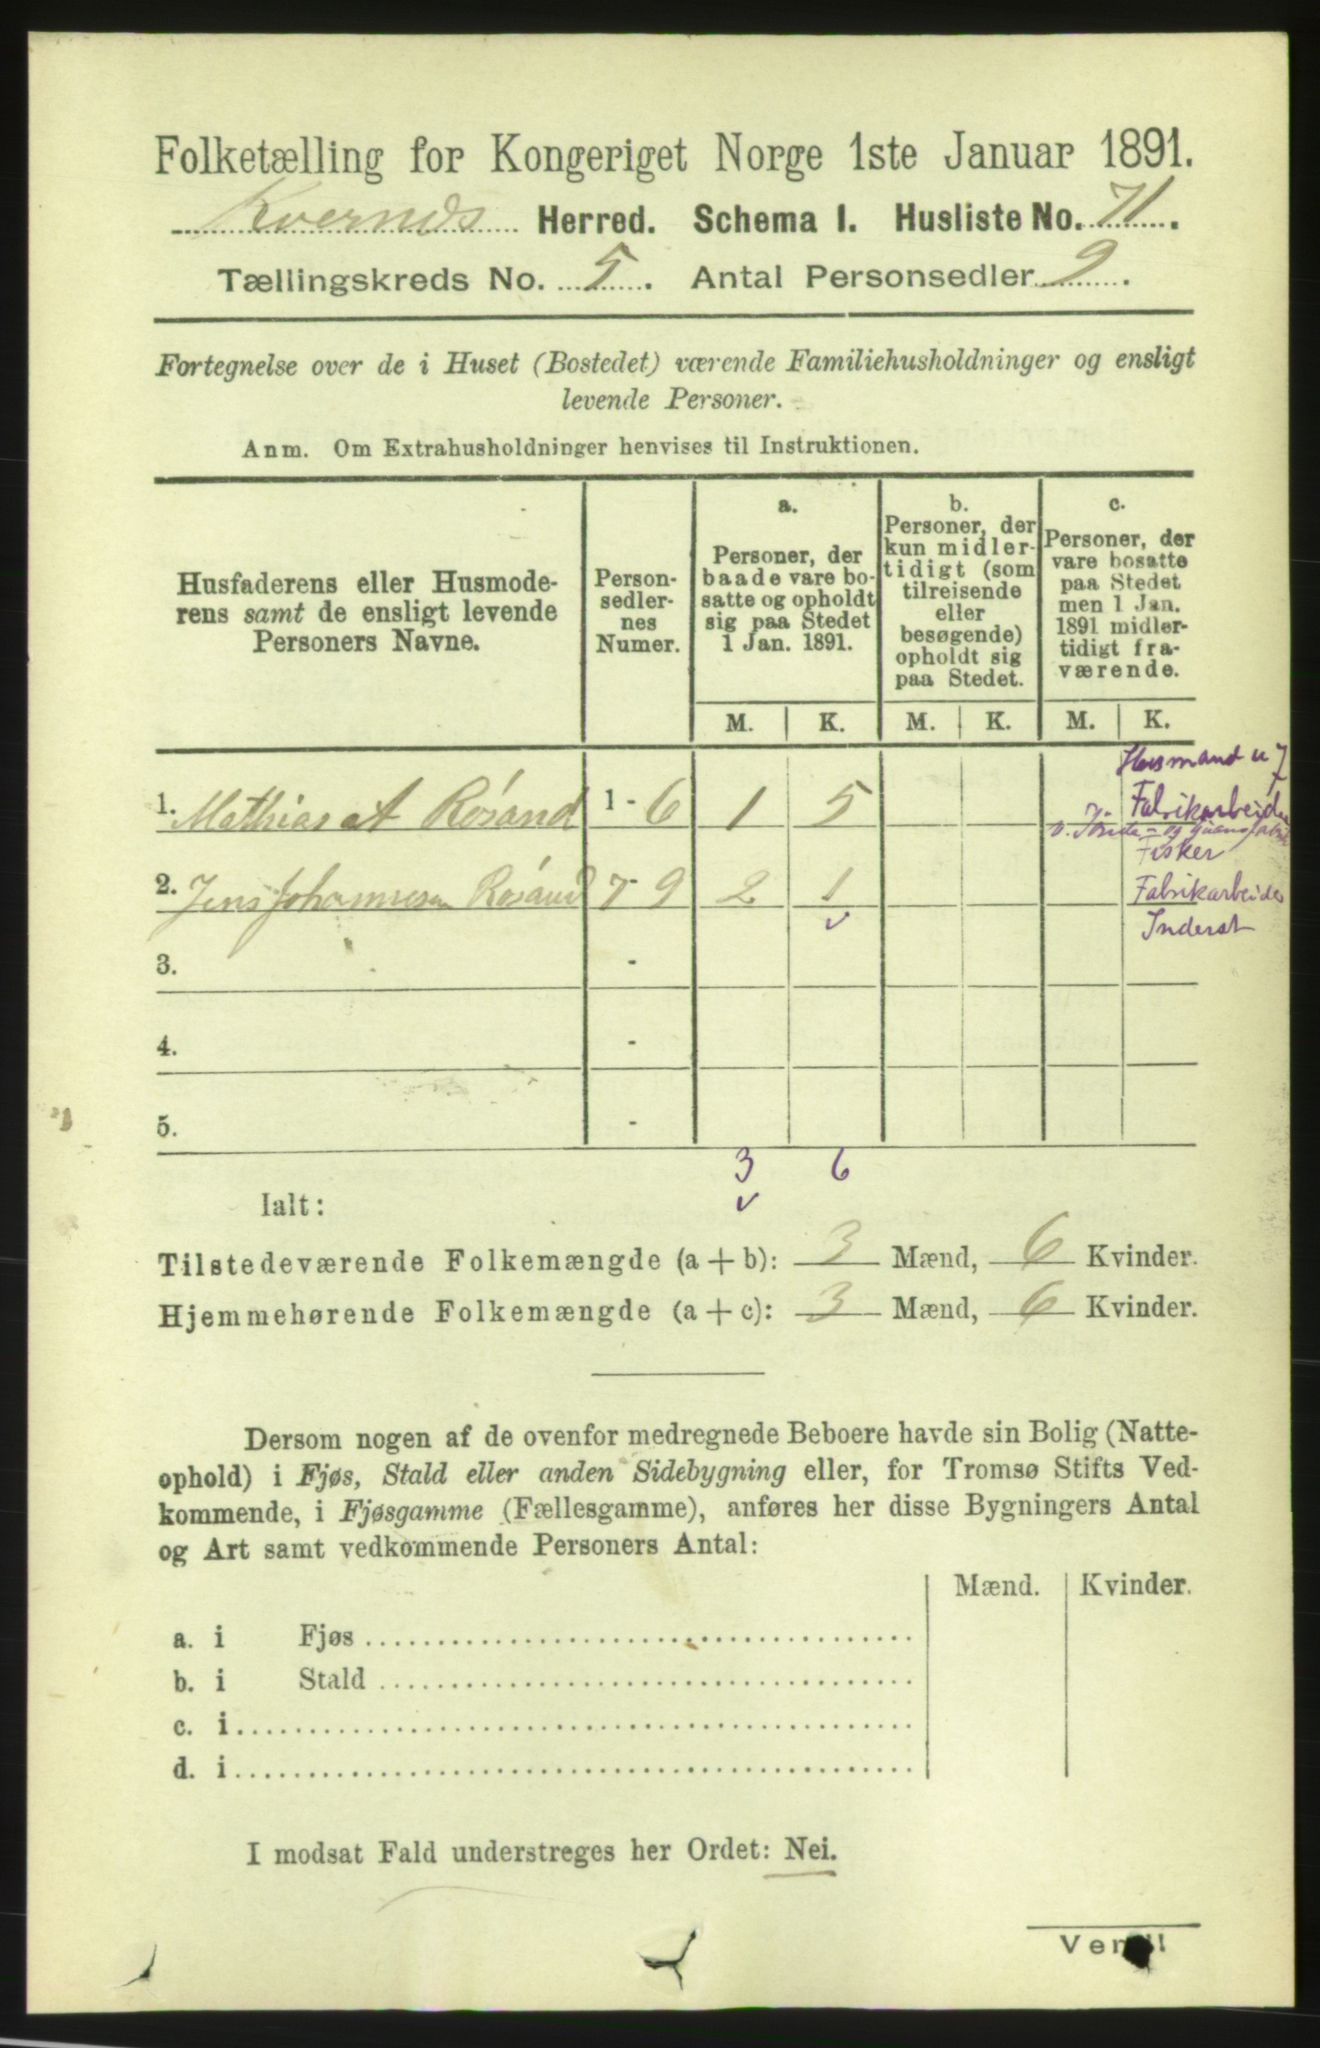 Folketælling for Kongeriget Norge 1ste Januar 1891.
Kvernes Herred. Schema I. Husliste No. 71.
Tællingskreds No. 5. Antal Personsedler 9.
Fortegnelse over de i Huset (Bostedet) værende Familiehusholdninger og ensligt
levende Personer.
Anm. Om Extrahusholdninger henvises til Instruktionen.
Husfaderens eller Husmode-
rens samt de ensligt levende
Personers Navne.
Person-
sedler-
nes
Numer.
a.
Personer, der
baade vare bo-
satte og opholdt
sig paa Stedet
1 Jan. 1891.
b.
Personer, der
kun midler-
tidigt (som
tilreisende
eller
besøgende)
opholdt sig
paa Stedet.
c.
Personer, der
vare bosatte
paa Stedet
men 1 Jan.
1891 midler-
tidigt fra-
værende.
M. K. M. K. M. K.
Husmand u J
1. Mathias A Rösand 1 - 6 1 5 Fabrikarbeider
og Guanofabrik
Fisker
2. Jens Johannesen Rösand 7 - 9 2 1 Fabrikarbeider
Inderst
3. -
4. -
5. -
3 6
Ialt:
Tilstedeværende Folkemængde (a + b): 3 Mænd, 6 Kvinder.
Hjemmehørende Folkemængde (a + c): 3 Mænd, 6 Kvinder.
Dersom nogen af de ovenfor medregnede Beboere havde sin Bolig (Natte-
ophold) i Fjøs, Stald eller anden Sidebygning eller, for Tromsø Stifts Ved-
kommende, i Fjøsgamme (Fællesgamme), anføres her disse Bygningers Antal
og Art samt vedkommende Personers Antal:
Mænd. Kvinder.
a. i Fjøs
b. i Stald
c. i
d. i
I modsat Fald understreges her Ordet: Nei.